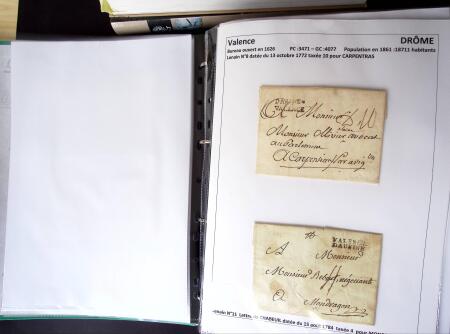 Valence DRÔME
Bureau ouvert en 1626 PC :3471 – GC :4077 Population en 1861 :18711 habitants
Lenain N°8 datée du 13 octobre 1772 taxée 10 pour CARPENTRAS
A Monsieur
Monsieur Olivier avocat
au Parlement
a Carpentras
VALENCE
DAUPHINÉ
A Monsieur
Monsieur négociant
A Mondragon
Lenain N°11 Lettre de CHABEUIL datée du 1784 taxée 4 pour